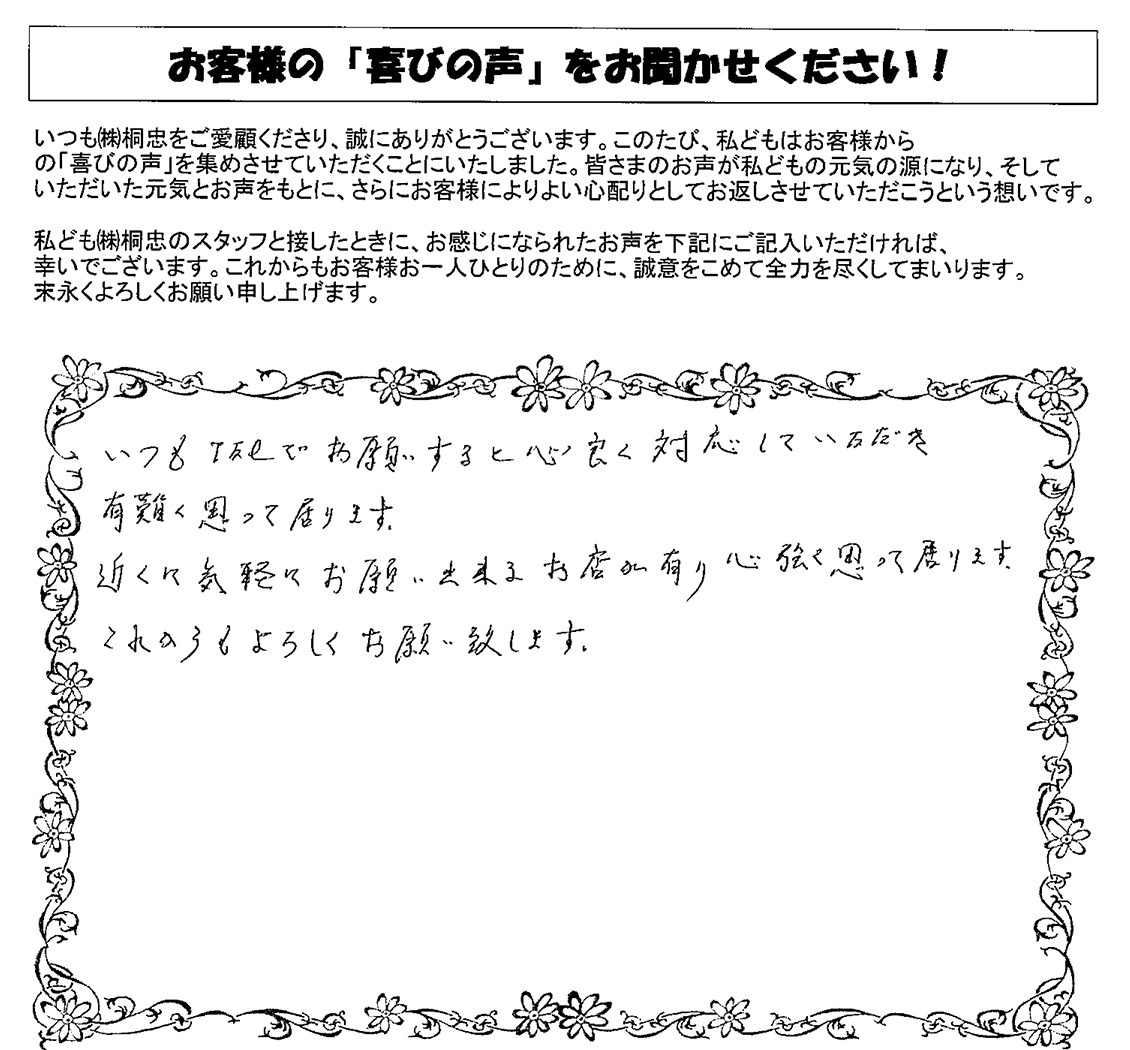 お客様の「喜びの声」をお聞かせください！
いつも㈱桐忠をご愛顧くださり、誠にありがとうございます。このたび、私どもはお客様から
の「喜びの声」を集めさせていただくことにいたしました。皆さまのお声が私どもの元気の源になり、そして
いただいた元気とお声をもとに、さらにお客様によりよい心配りとしてお返しさせていただこうという想いです。
私ども㈱桐忠のスタッフと接したときに、お感じになられたお声を下記にご記入いただければ、
幸いでございます。これからもお客様お一人ひとりのために、誠意をこめて全力を尽くしてまいります。
末永くよろしくお願い申し上げます。
いつもTELでお願いすると心良く対応していただき
有難く思って居ります。
近くに気軽にお願い出来るお店が有り心強く思って居ります。
これからもよろしくお願い致します。